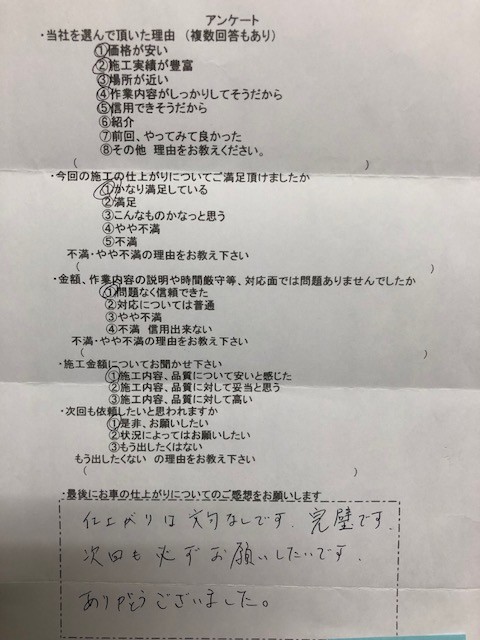 アンケート
・当社を選んで頂いた理由 （複数回答もあり）
①価格が安い
②施工実績が豊富
③場所が近い
④作業内容がしっかりしてそうだから
⑤信用できそうだから
⑥紹介
⑦前回、やってみて良かった
⑧その他 理由をお教えください。
( )
・今回の施工の仕上がりについてご満足頂けましたか
①かなり満足している
②満足
③こんなものかなっと思う
④やや不満
⑤不満
不満・やや不満の理由をお教え下さい
( )
・金額、作業内容の説明や時間厳守等、対応面では問題ありませんでしたか
①問題なく信頼できた
②対応については普通
③やや不満
④不満 信用出来ない
不満・やや不満の理由をお教え下さい
( )
・施工金額についてお聞かせ下さい
①施工内容、品質について安いと感じた
②施工内容、品質に対して妥当と思う
③施工内容、品質に対して高い
・次回も依頼したいと思われますか
①是非、お願いしたい
②状況によってはお願いしたい
③もう出したくはない
もう出したくない の理由をお教え下さい
( )
・最後にお車の仕上がりについてのご感想をお願いします
仕上がりは文句なしです。完璧です。
次回も必ずお願いしたいです。
ありがとうございました。